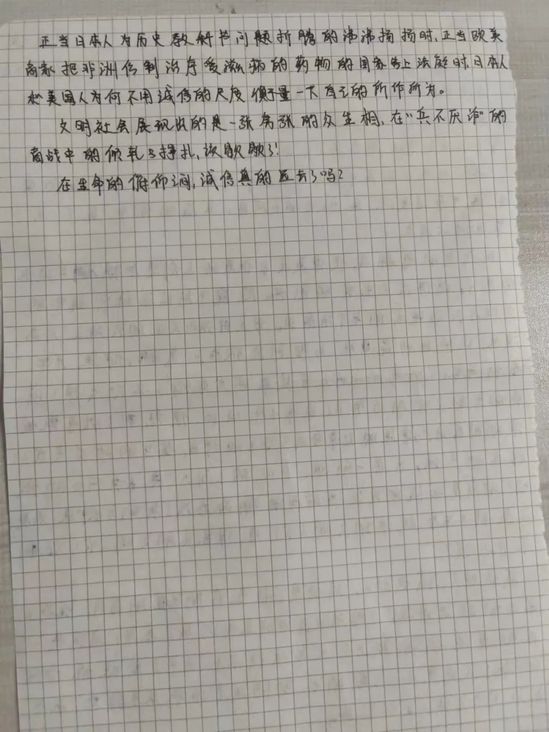 正当日本人为历史教科书问题折腾的沸沸扬扬时,正当欧美
商家把非洲仿制治疗爱滋病的药物的国家告上法庭时,日本人
和美国人为何不用诚信的尺度衡量一下自己的所作所为。
文明社会展现出的是一张夸张的众生相,在“兵不厌诈”的
商战中的倾轧与挣扎,该歇歇了!
在生命的俯仰之间,诚信真的逝去了吗?